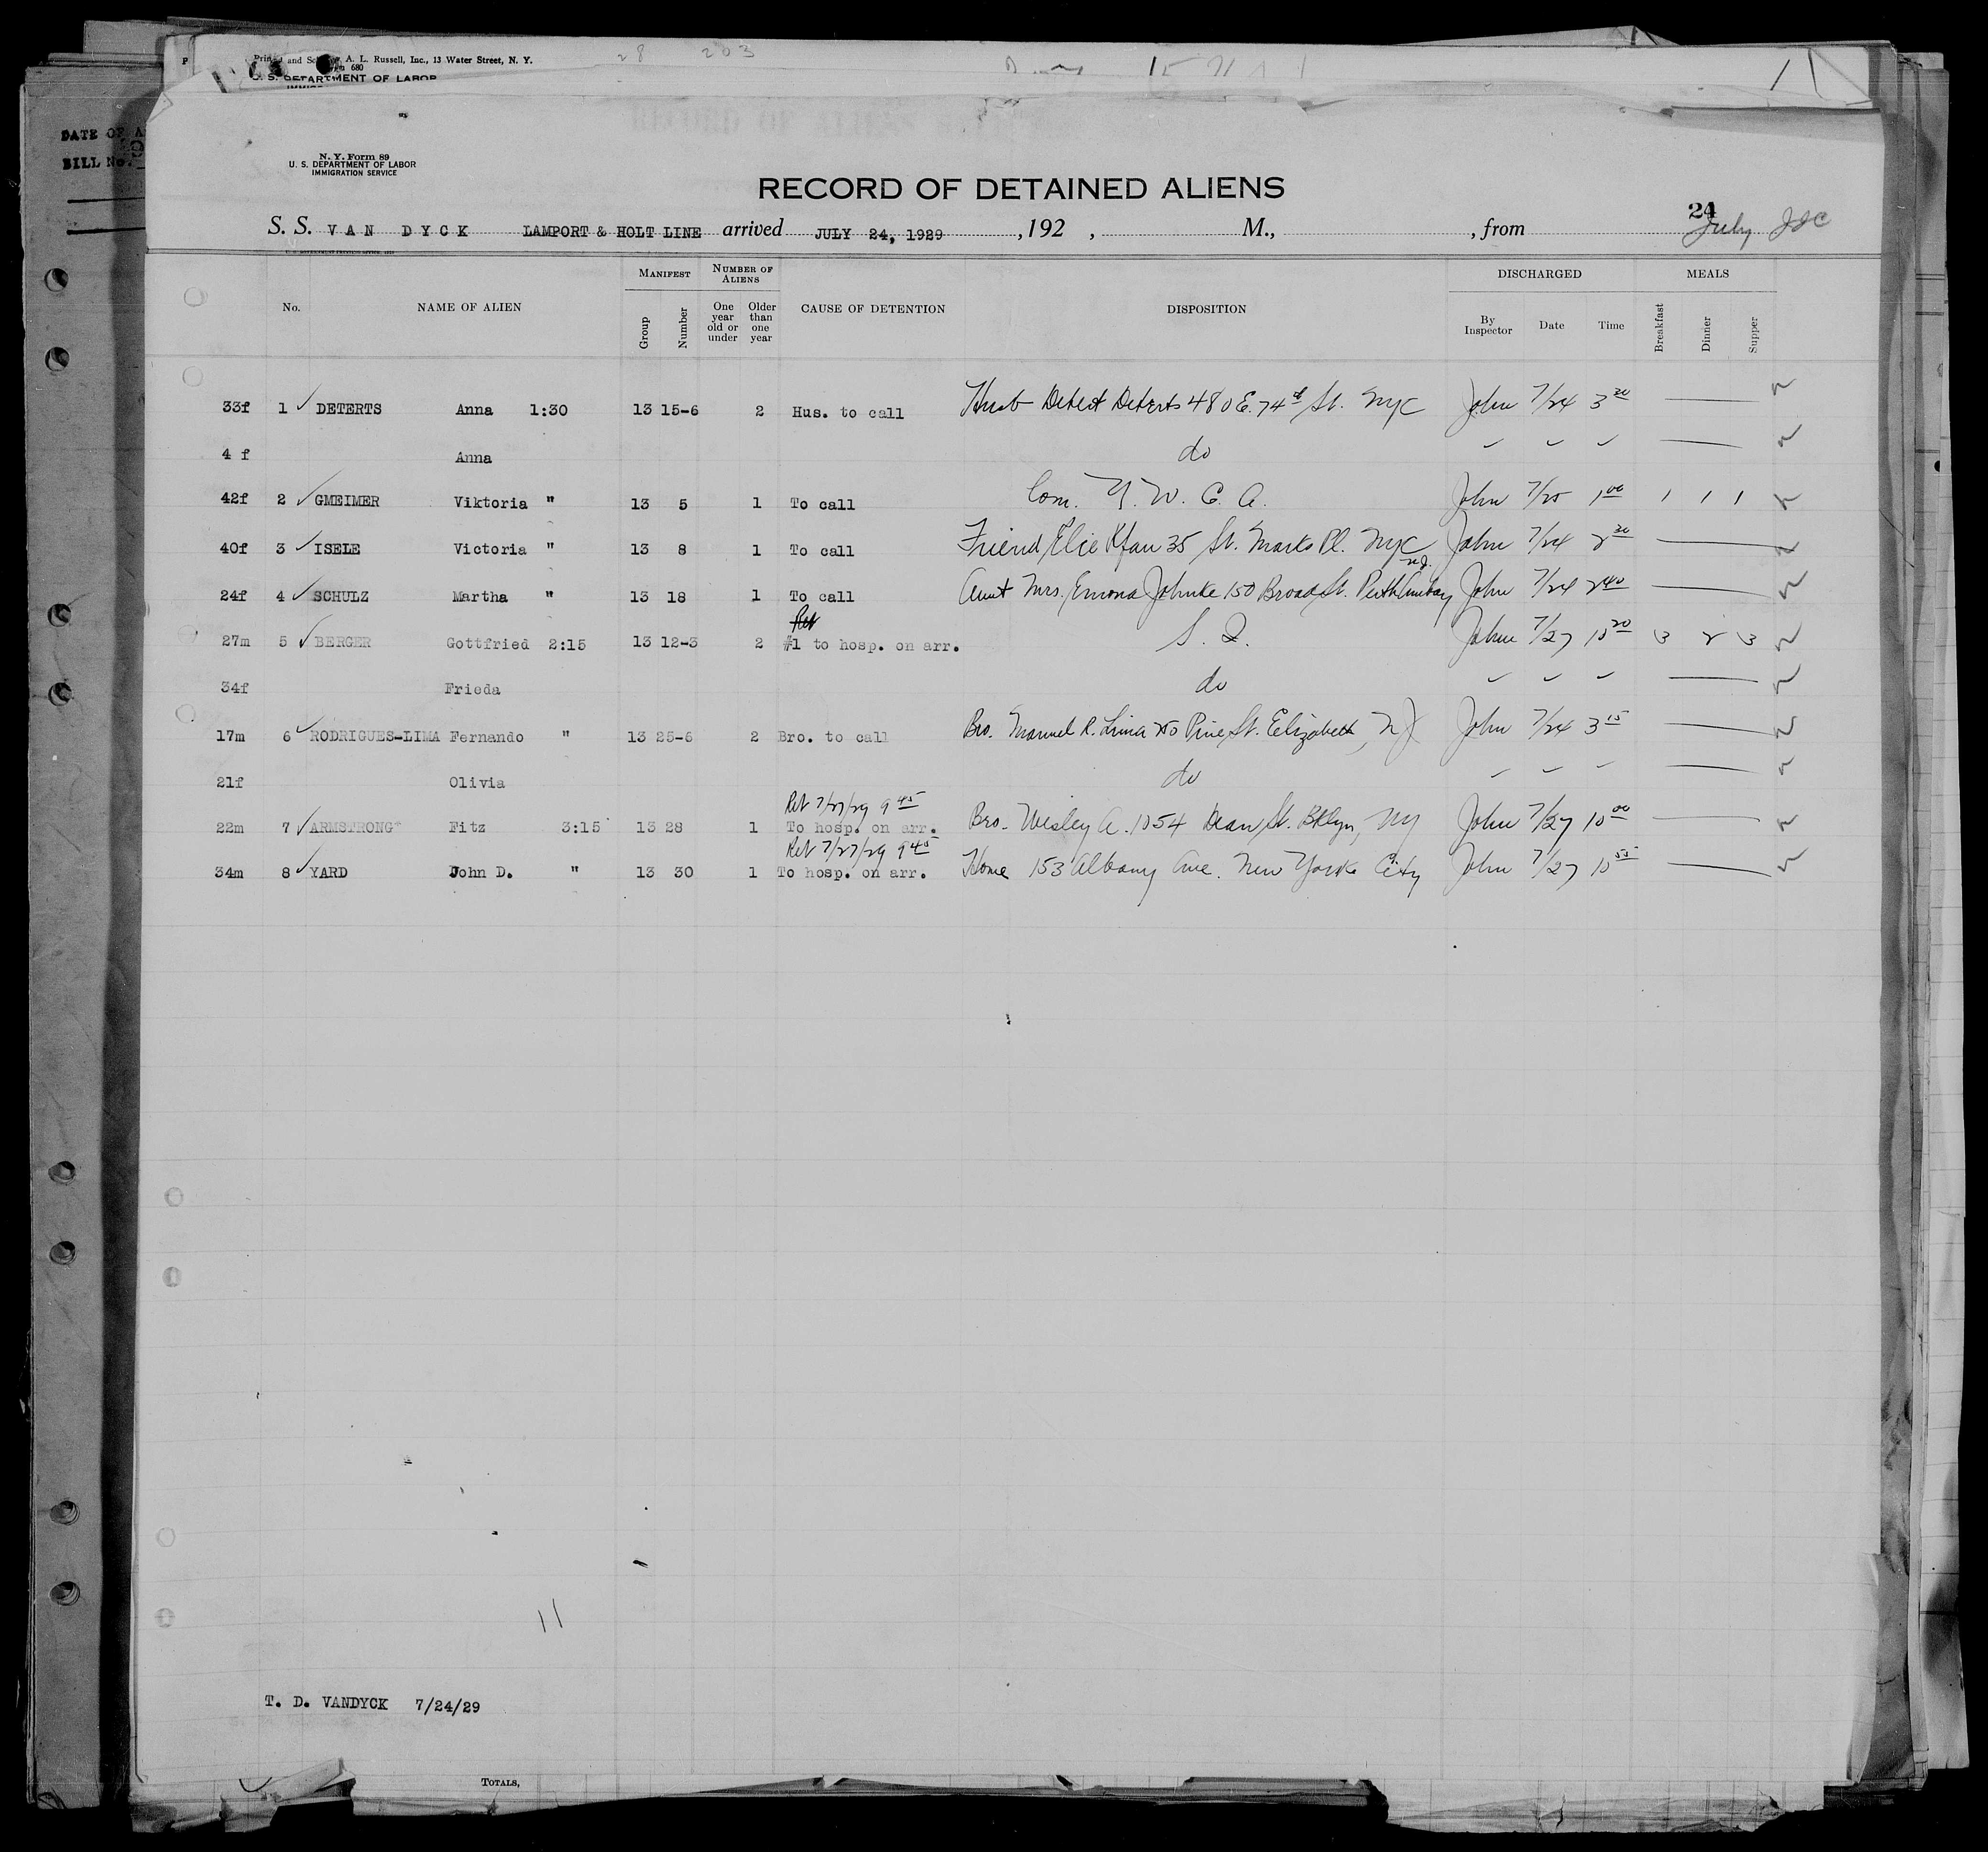 Printed and Sold by A. L. Russell, Inc., 13 Water Street, N. Y.
680
U. S. DEPARTMENT OF LABOR
28 203
DATE OF
BILL No.
N. Y. Form 89
U. S. DEPARTMENT OF LABOR
IMMIGRATION SERVICE
RECORD OF DETAINED ALIENS
S. S. VAN DYCK LAMPORT & HOLT LINE arrived JULY 24, 1929 , 192 , M., , from 24 July
MANIFEST NUMBER OF ALIENS DISCHARGED MEALS
No. NAME OF ALIEN Group Number One year old or under Older than one year CAUSE OF DETENTION DISPOSITION By Inspector Date Time Breakfast Dinner Supper
33f 1 ✓ DETERTS Anna 1:30 13 15-6 2 Hus. to call Husb Detert Deterts 480 E. 74th St. NYC John 7/24 3 20
4 f Anna do
42f 2 ✓ GMEIMER Viktoria " 13 5 1 To call Com. Y. W. C. A. John 7/25 1 00 1 1 1
40f 3 ✓ ISELE Victoria " 13 8 1 To call Friend Elie 35 St. Marks Pl. NYC John 7/24 2 20
24f 4 ✓ SCHULZ Martha " 13 18 1 To call Aunt Mrs. Emma Johnke 150 Broad St. Perth Amboy N.J. John 7/24 2 40
27m 5 ✓ BERGER Gottfried 2:15 13 12-3 2 #1 to hosp. on arr. Ret S. I. John 7/27 10 20 3 2 3
34f Frieda do
17m 6 ✓ RODRIGUES-LIMA Fernando " 13 25-6 2 Bro. to call Bro. Manuel R. Lima Pine St. Elizabeth, NJ John 7/24 3 15
21f Olivia do
Ret 7/27/29 9 45
22m 7 ✓ ARMSTRONG Fitz 3:15 13 28 1 To hosp. on arr. Bro. Wesley A. 1054 Dean St. Bklyn, NY John 7/27 10 00
Ret 7/27/29 9 45
34m 8 ✓ YARD John D. " 13 30 1 To hosp. on arr. Home 153 Albany Ave. New York City John 7/27 10 55
11
T. D. VANDYCK 7/24/29
TOTALS,